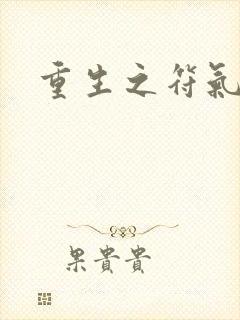 重生之符氣
果貴貴